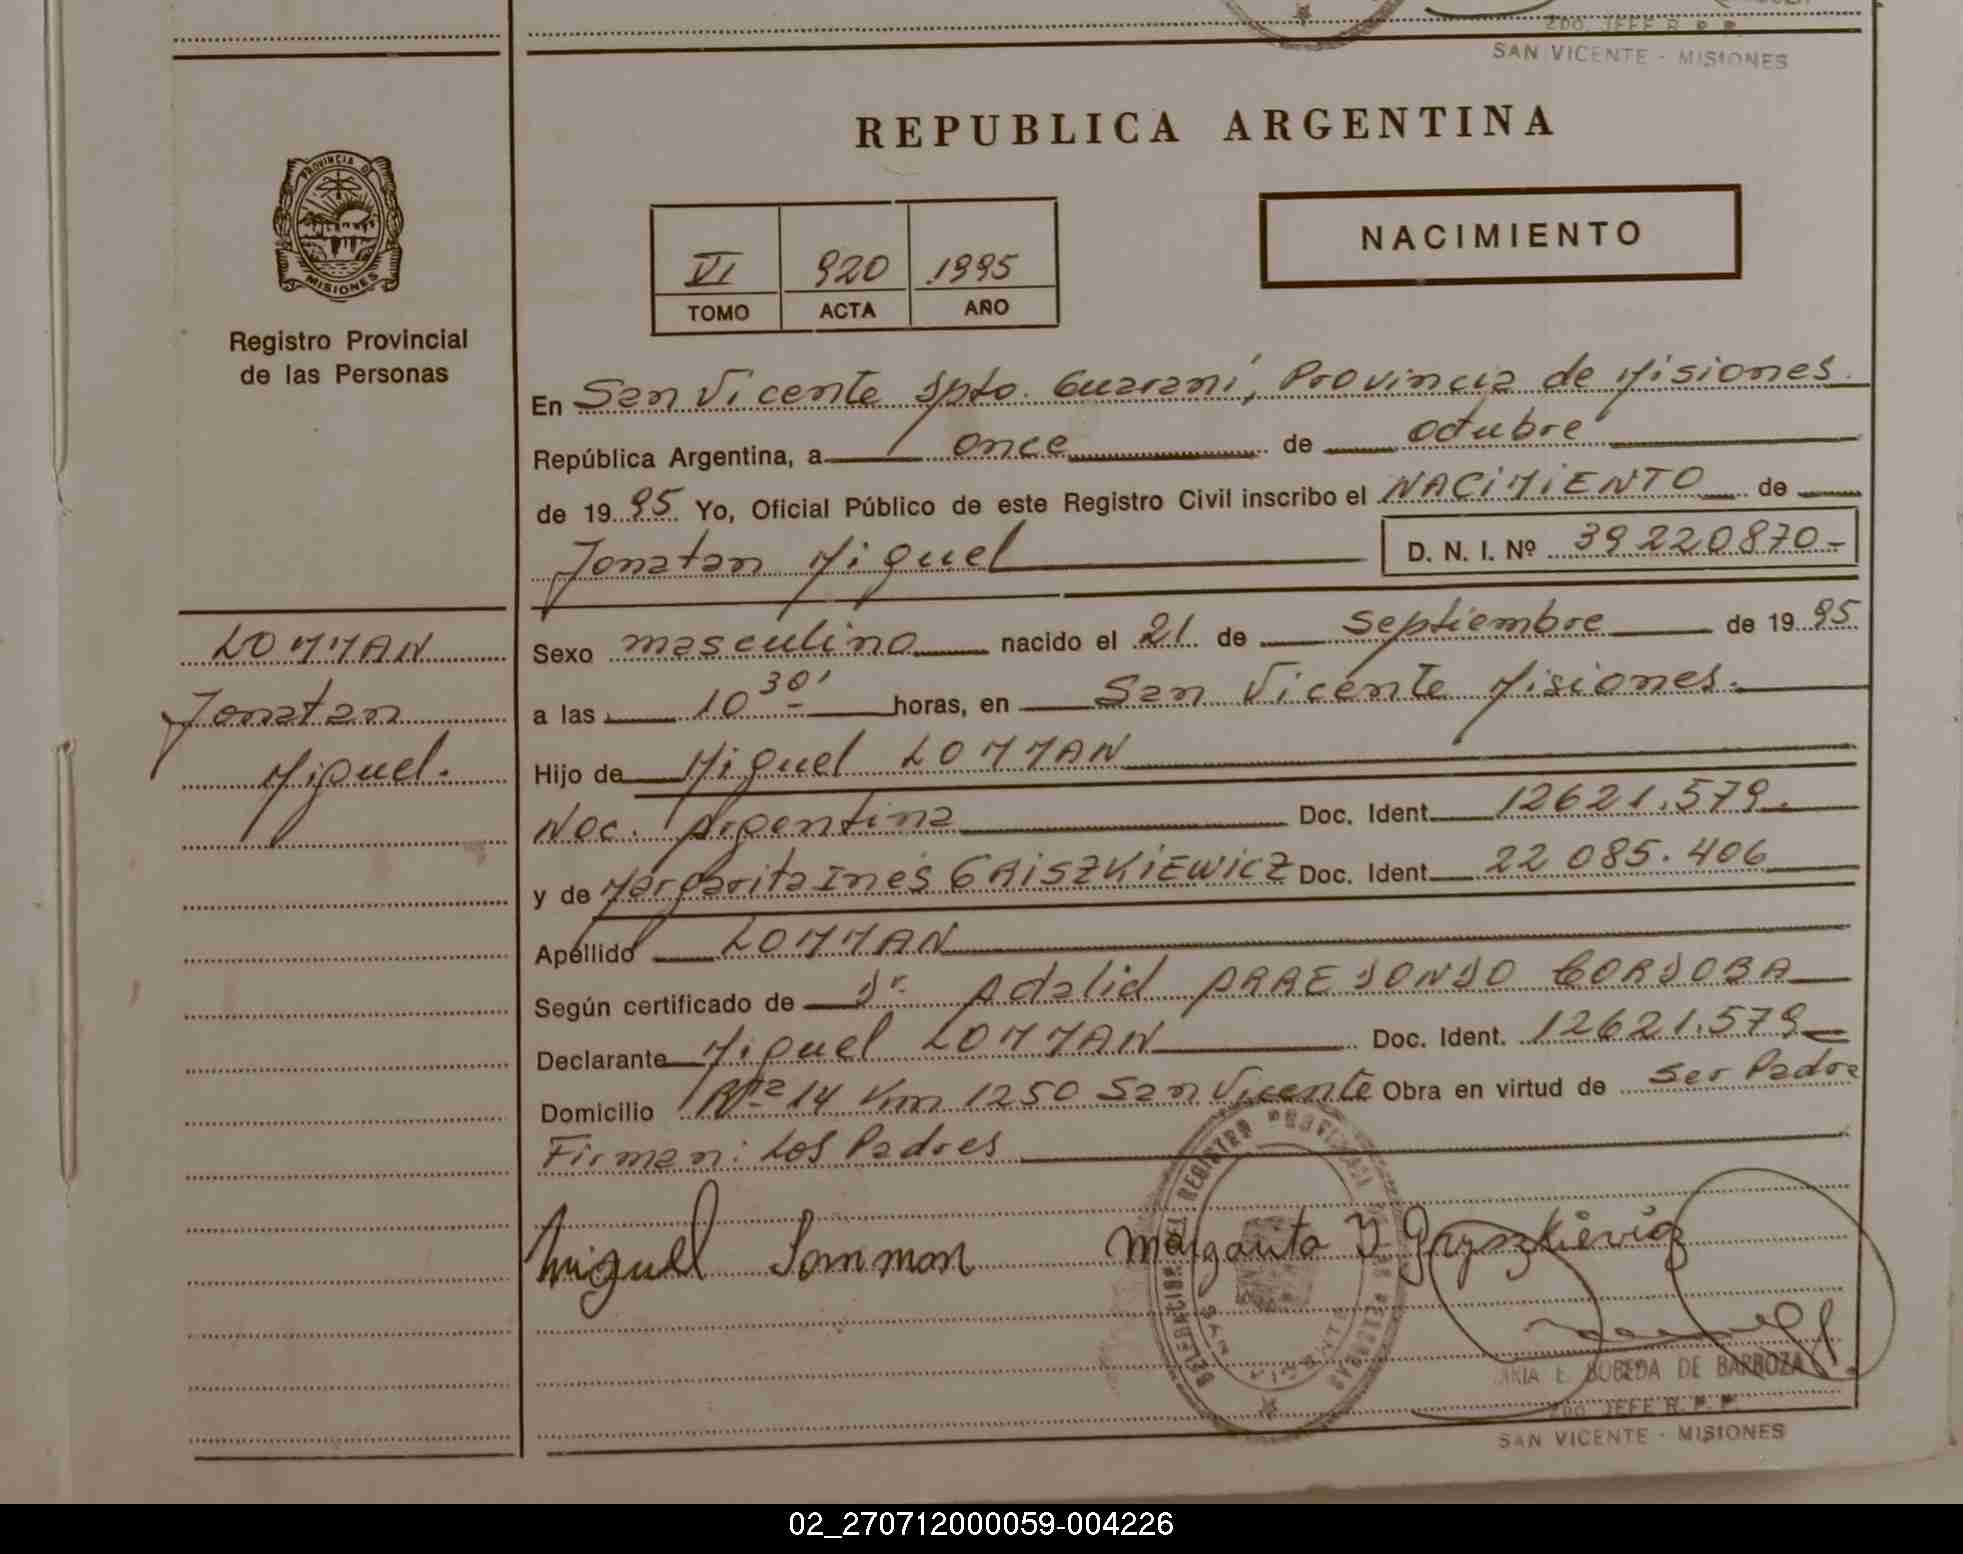 2DO. JEFE R. P. P.
SAN VICENTE - MISIONES
REPUBLICA ARGENTINA
PROVINCIA DE
MISIONES
Registro Provincial
de las Personas
NACIMIENTO
VI 920 1995
TOMO ACTA AÑO
En San Vicente Dpto. Guaraní, Provincia de Misiones.
República Argentina, a once de octubre
de 1995 Yo, Oficial Público de este Registro Civil inscribo el NACIMIENTO de
Jonatan Miguel D. N. I. Nº 39220870-
LOMMAN
Jonatan
Miguel.
Sexo masculino nacido el 21 de septiembre de 1995
a las 10 30' horas, en San Vicente Misiones.
Hijo de Miguel LOMMAN
Nac. Argentina Doc. Ident. 12621.579.
y de Margarita Inés GRISZKIEWICZ Doc. Ident. 22 085.406
Apellido LOMMAN
Según certificado de Dr. Adalid ARREDONDO CORDOBA
Declarante Miguel LOMMAN Doc. Ident. 12621.579
Domicilio Rta 14 Km 1250 San Vicente Obra en virtud de Ser Padre
Firman: Los Padres
Miguel Lomman Margarita Y Gryszkievicz
DELEGACION DEL REGISTRO PROVINCIAL DE LAS PERSONAS
E. BOBEDA DE BARBOZA
2DO. JEFE R. P. P.
SAN VICENTE - MISIONES
02_270712000059-004226